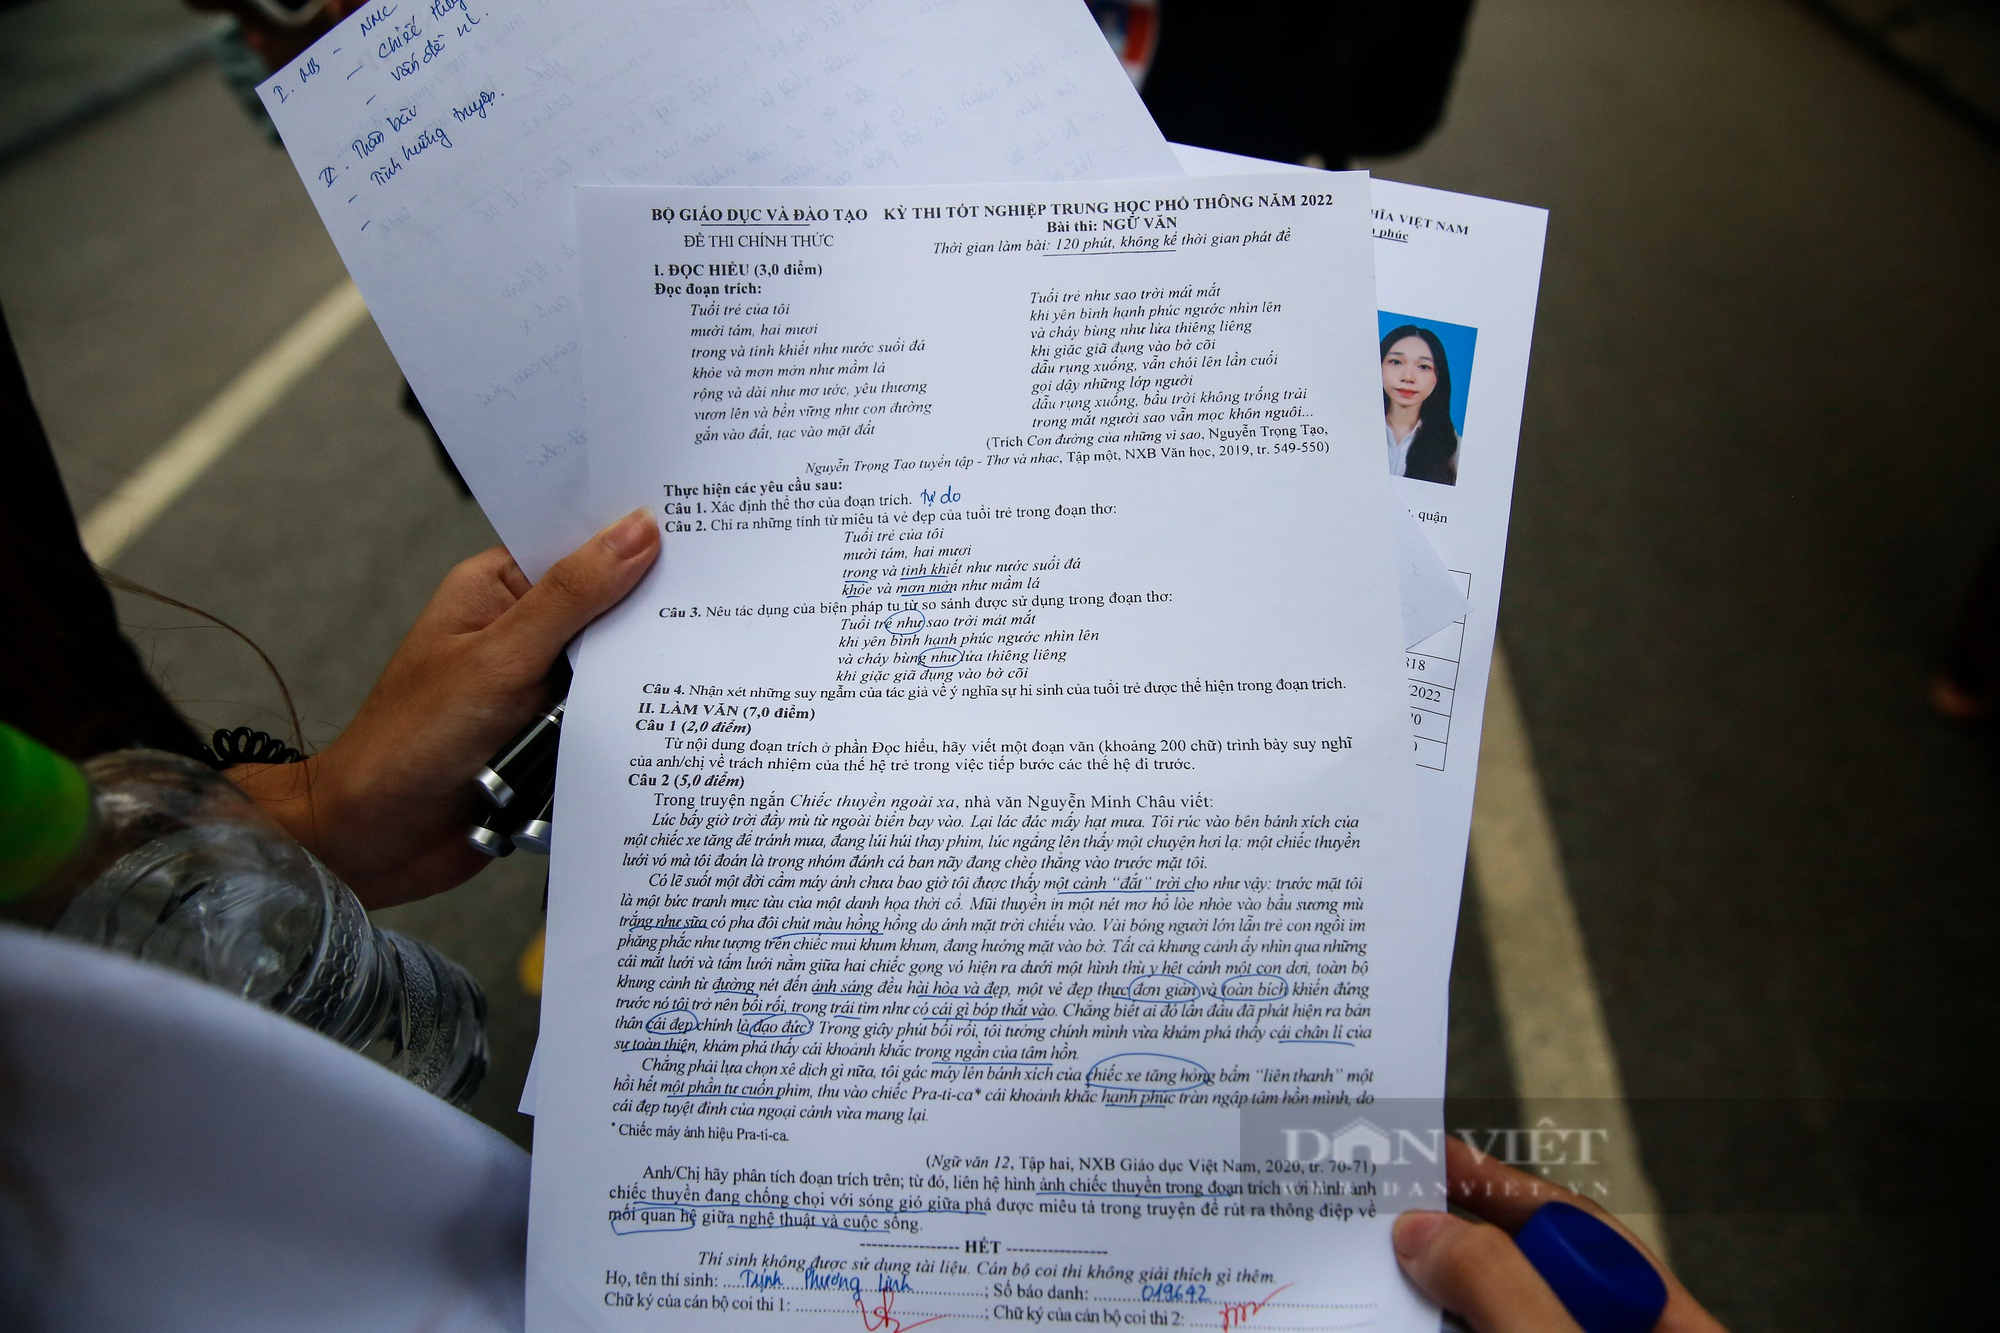 I. MB - NMC
- chiếc
- vấn đề nl.
II. Thân bài
- Tình huống truyện.
-
BỘ GIÁO DỤC VÀ ĐÀO TẠO
ĐỀ THI CHÍNH THỨC
KỲ THI TỐT NGHIỆP TRUNG HỌC PHỔ THÔNG NĂM 2022
Bài thi: NGỮ VĂN
Thời gian làm bài: 120 phút, không kể thời gian phát đề
I. ĐỌC HIỂU (3,0 điểm)
Đọc đoạn trích:
Tuổi trẻ của tôi
mười tám, hai mươi
trong và tinh khiết như nước suối đá
khỏe và mơn mởn như mầm lá
rộng và dài như mơ ước, yêu thương
vươn lên và bền vững như con đường
gắn vào đất, tạc vào mặt đất
Tuổi trẻ như sao trời mát mắt
khi yên bình hạnh phúc ngước nhìn lên
và cháy bùng như lửa thiêng liêng
khi giặc giã đụng vào bờ cõi
dẫu rụng xuống, vẫn chói lên lần cuối
gọi dậy những lớp người
dẫu rụng xuống, bầu trời không trống trải
trong mắt người sao vẫn mọc khôn nguôi...
(Trích Con đường của những vì sao, Nguyễn Trọng Tạo,
Nguyễn Trọng Tạo tuyển tập - Thơ và nhạc, Tập một, NXB Văn học, 2019, tr. 549-550)
Thực hiện các yêu cầu sau:
Câu 1. Xác định thể thơ của đoạn trích. tự do
Câu 2. Chỉ ra những tính từ miêu tả vẻ đẹp của tuổi trẻ trong đoạn thơ:
Tuổi trẻ của tôi
mười tám, hai mươi
trong và tinh khiết như nước suối đá
khỏe và mơn mởn như mầm lá
Câu 3. Nêu tác dụng của biện pháp tu từ so sánh được sử dụng trong đoạn thơ:
Tuổi trẻ như sao trời mát mắt
khi yên bình hạnh phúc ngước nhìn lên
và cháy bùng như lửa thiêng liêng
khi giặc giã đụng vào bờ cõi
Câu 4. Nhận xét những suy ngẫm của tác giả về ý nghĩa sự hi sinh của tuổi trẻ được thể hiện trong đoạn trích.
II. LÀM VĂN (7,0 điểm)
Câu 1 (2,0 điểm)
Từ nội dung đoạn trích ở phần Đọc hiểu, hãy viết một đoạn văn (khoảng 200 chữ) trình bày suy nghĩ
của anh/chị về trách nhiệm của thế hệ trẻ trong việc tiếp bước các thế hệ đi trước.
Câu 2 (5,0 điểm)
Trong truyện ngắn Chiếc thuyền ngoài xa, nhà văn Nguyễn Minh Châu viết:
Lúc bấy giờ trời đầy mù từ ngoài biển bay vào. Lại lác đác mấy hạt mưa. Tôi rúc vào bên bánh xích của
một chiếc xe tăng để tránh mưa, đang lúi húi thay phim, lúc ngẩng lên thấy một chuyện hơi lạ: một chiếc thuyền
lưới vó mà tôi đoán là trong nhóm đánh cá ban nãy đang chèo thẳng vào trước mặt tôi.
Có lẽ suốt một đời cầm máy ảnh chưa bao giờ tôi được thấy một cảnh "đắt" trời cho như vậy: trước mặt tôi
là một bức tranh mực tàu của một danh họa thời cổ. Mũi thuyền in một nét mơ hồ lòe nhòe vào bầu sương mù
trắng như sữa có pha đôi chút màu hồng hồng do ánh mặt trời chiếu vào. Vài bóng người lớn lẫn trẻ con ngồi im
phăng phắc như tượng trên chiếc mui khum khum, đang hướng mặt vào bờ. Tất cả khung cảnh ấy nhìn qua những
cái mắt lưới và tấm lưới nằm giữa hai chiếc gọng vó hiện ra dưới một hình thù y hệt cánh một con dơi, toàn bộ
khung cảnh từ đường nét đến ánh sáng đều hài hòa và đẹp, một vẻ đẹp thực đơn giản và toàn bích khiến đứng
trước nó tôi trở nên bối rối, trong trái tim như có cái gì bóp thắt vào. Chẳng biết ai đó lần đầu đã phát hiện ra bản
thân cái đẹp chính là đạo đức? Trong giây phút bối rối, tôi tưởng chính mình vừa khám phá thấy cái chân lí của
sự toàn thiện, khám phá thấy cái khoảnh khắc trong ngần của tâm hồn.
Chẳng phải lựa chọn xê dịch gì nữa, tôi gác máy lên bánh xích của chiếc xe tăng hỏng bấm "liên thanh" một
hồi hết một phần tư cuốn phim, thu vào chiếc Pra-ti-ca* cái khoảnh khắc hạnh phúc tràn ngập tâm hồn mình, do
cái đẹp tuyệt đỉnh của ngoại cảnh vừa mang lại.
* Chiếc máy ảnh hiệu Pra-ti-ca.
(Ngữ văn 12, Tập hai, NXB Giáo dục Việt Nam, 2020, tr. 70-71)
Anh/Chị hãy phân tích đoạn trích trên; từ đó, liên hệ hình ảnh chiếc thuyền trong đoạn trích với hình ảnh
chiếc thuyền đang chống chọi với sóng gió giữa phá được miêu tả trong truyện để rút ra thông điệp về
mối quan hệ giữa nghệ thuật và cuộc sống.
---------------- HẾT ----------------
Thí sinh không được sử dụng tài liệu. Cán bộ coi thi không giải thích gì thêm.
Họ, tên thí sinh: Trịnh Phương Linh; Số báo danh: 019642
Chữ ký của cán bộ coi thi 1: ; Chữ ký của cán bộ coi thi 2:
HĨA VIỆT NAM
phúc
quận
318
/2022
DÂN VIỆT
WWW.DANVIET.VN